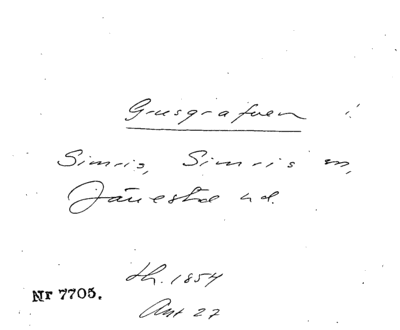 Grusgrafven i
Simris, Simris sn,
Järrestad hd.
th. 1854
Nr 7705.
Ant 27